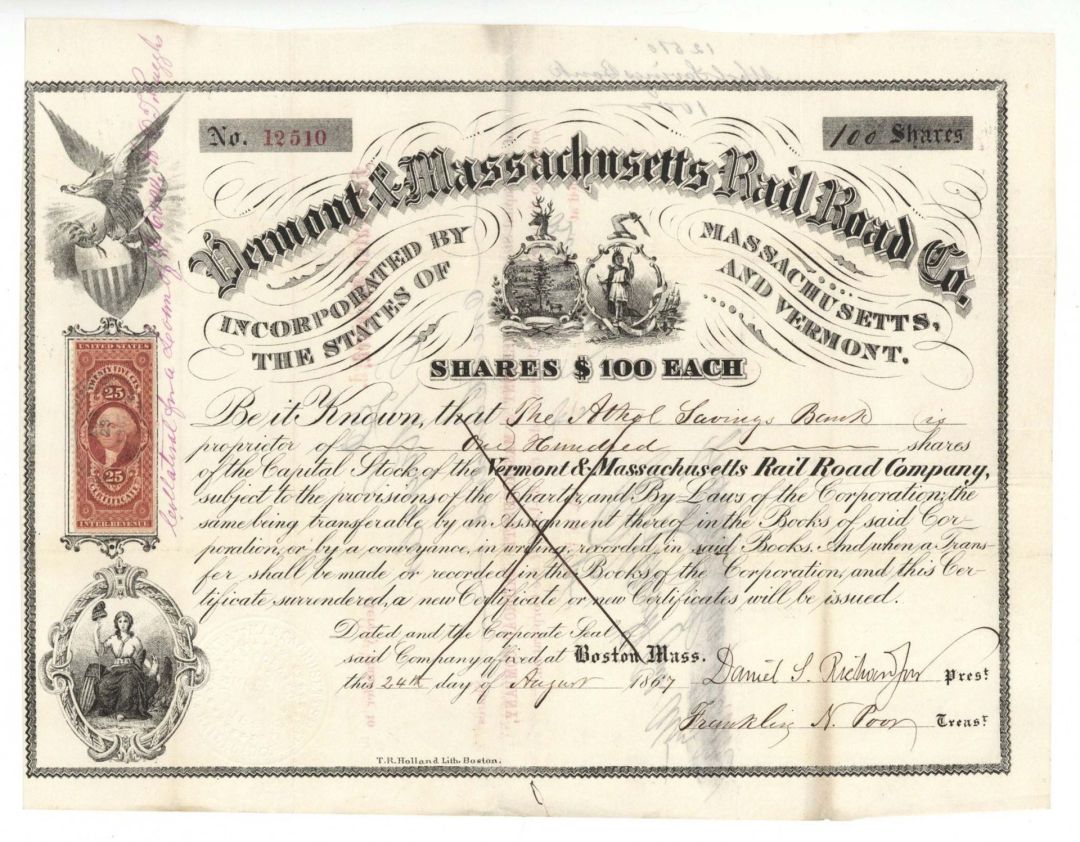 No. 12510
100 Shares
Vermont & Massachusetts Rail Road Co.
INCORPORATED BY
THE STATES OF
MASSACHUSETTS,
AND VERMONT.
SHARES $100 EACH
UNITED STATES
TWENTY FIVE
25
25
CERTIFICATE
INTER. REVENUE
Collateral for a Loan
Be it Known, that The Athol Savings Bank is
proprietor of One Hundred shares
of the Capital Stock of the Vermont & Massachusetts Rail Road Company,
subject to the provisions of the Charter, and By Laws of the Corporation; the
same being transferable by an Assignment thereof in the Books of said Cor-
poration, or by a conveyance, in writing, recorded, in said Books. And when a Trans-
fer shall be made or recorded in the Books of the Corporation, and this Cer-
tificate surrendered, a new Certificate or new Certificates will be issued.
Dated and the Corporate Seal of
said Company affixed at Boston Mass.
this 24th day of August 1867
Daniel S. Richardson Prest
Franklin N. Poor Treasr
T.R. Holland Lith. Boston.